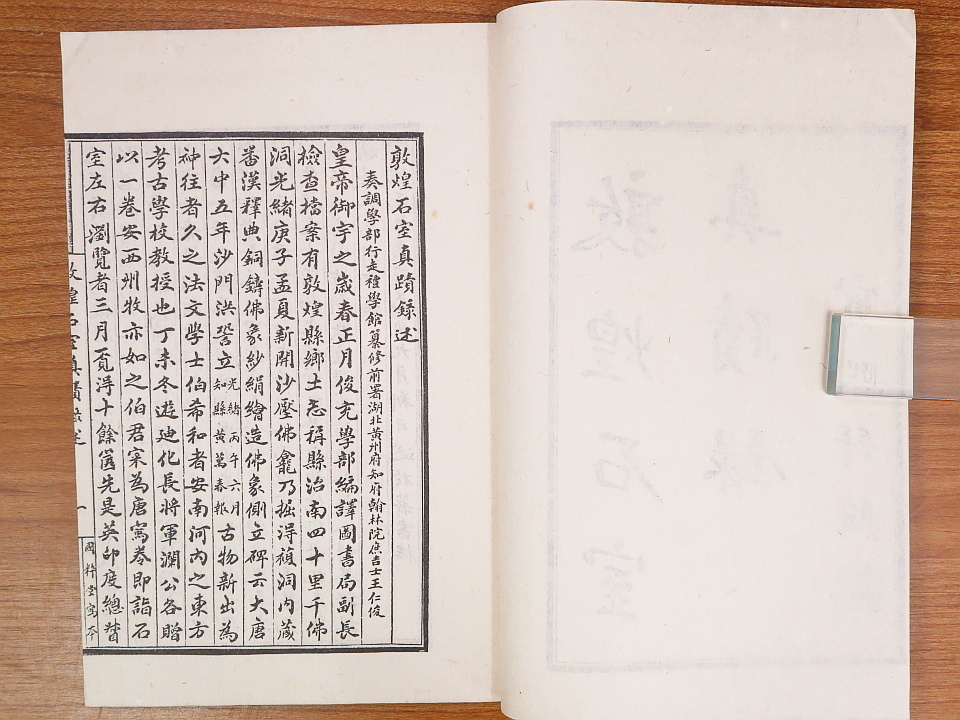 敦煌石室真蹟録述
奏調學部行走禮學館纂修前署湖北黃州府知府翰林院庶吉士王仁俊
皇帝御宇之歲春正月俊充學部編譯圖書局副長
檢查檔案有敦煌縣鄉土志稱縣治南四十里千佛
洞光緒庚子孟夏新開沙壓佛龕乃掘得複洞內藏
番漢釋典銅鑄佛象紗絹繪造佛象側立碑云大唐
大中五年沙門洪䛒立光緒丙午六月知縣黃萬春報古物新出為
神往者久之法文學士伯希和者安南河內之東方
考古學校教授也丁未冬遊廸化長將軍瀾公各贈
以一卷安西州牧亦如之伯君宷為唐寫卷即詣石
室左右瀏覽者三月覔得十餘篋先是英印度總督
敦煌石室真蹟録述
一
國粹堂寫本
敦煌石室
真蹟録